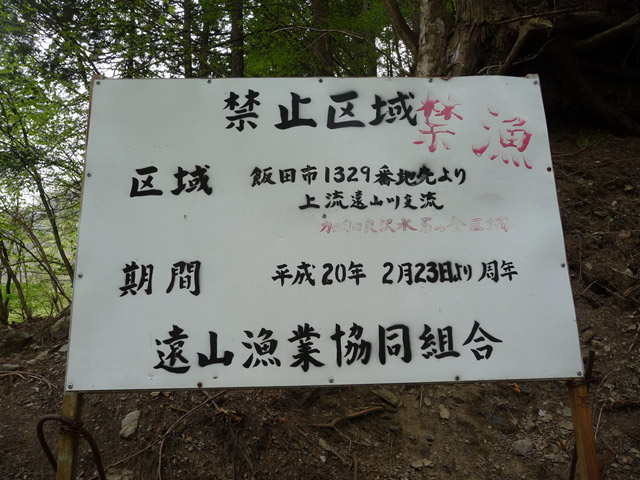 禁止区域 禁漁
区域 飯田市1329番地先より
上流遠山川支流
加加良沢水系の全区域
期間 平成20年 2月23日より周年
遠山漁業協同組合